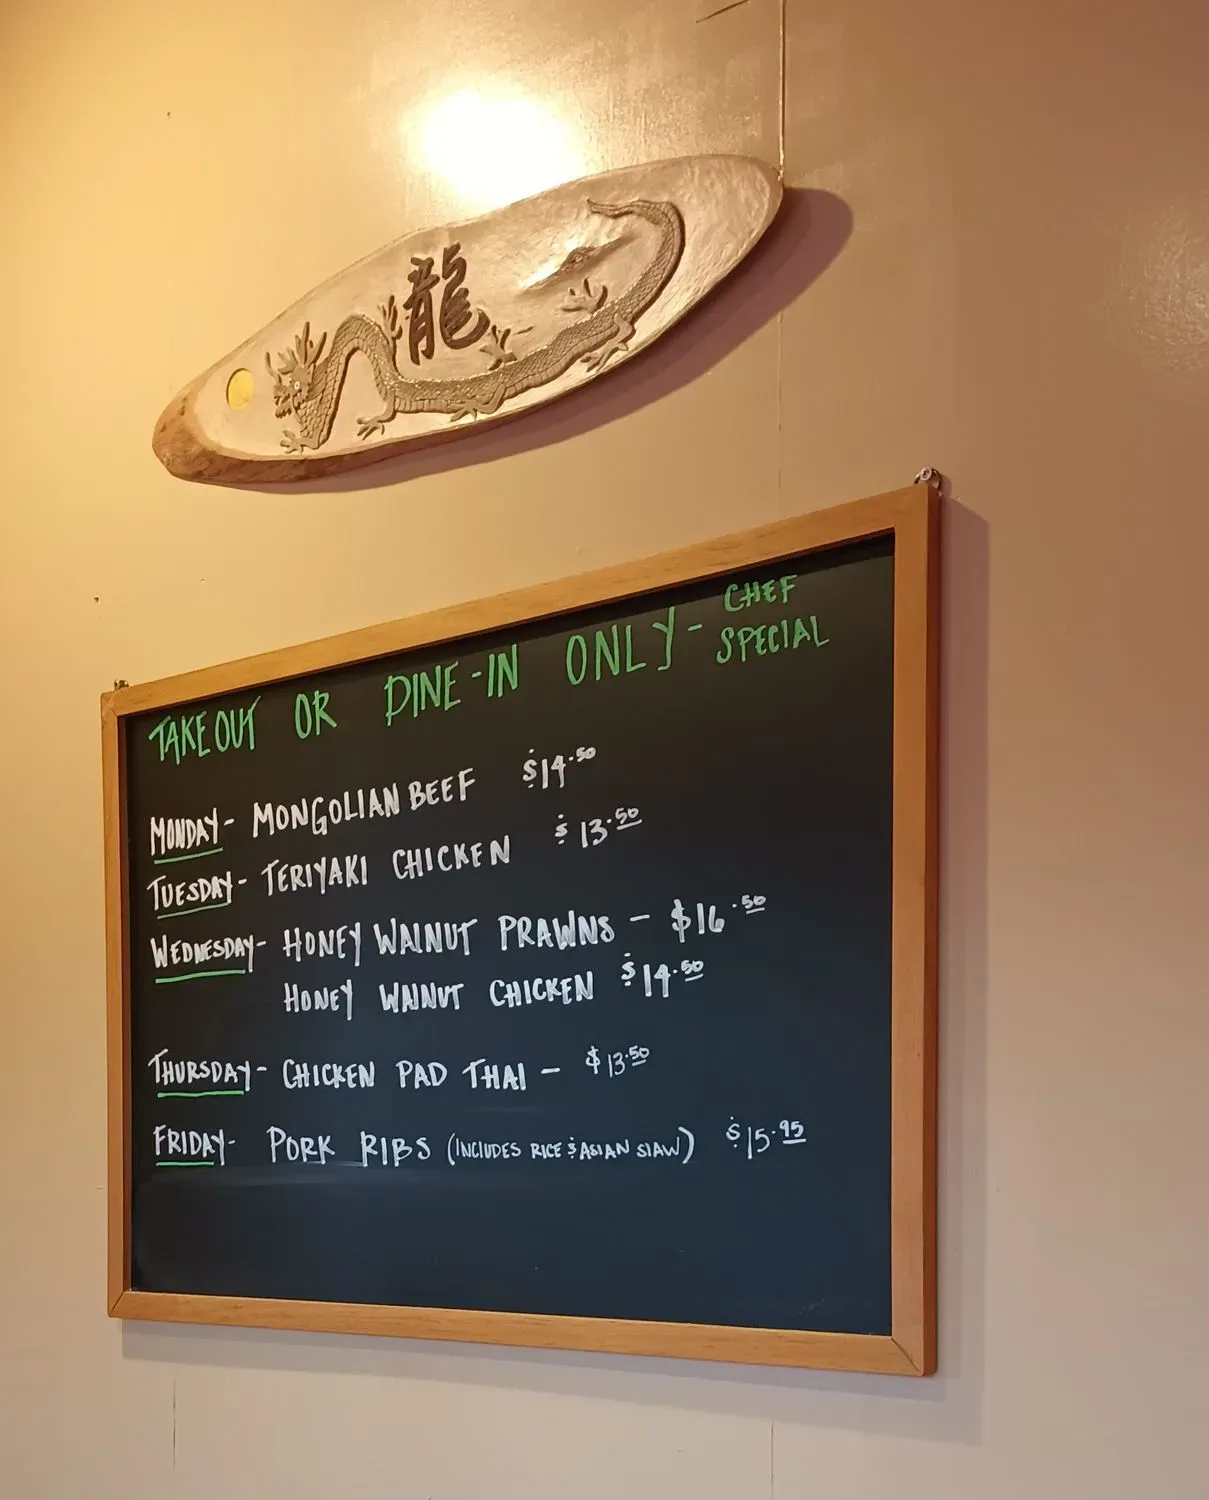 龍
TAKE OUT OR DINE-IN ONLY - CHEF SPECIAL
MONDAY - MONGOLIAN BEEF $14.50
TUESDAY - TERIYAKI CHICKEN $13.50
WEDNESDAY - HONEY WALNUT PRAWNS - $16.50
HONEY WALNUT CHICKEN $14.50
THURSDAY - CHICKEN PAD THAI - $13.50
FRIDAY - PORK RIBS (INCLUDES RICE & ASIAN SLAW) $15.95